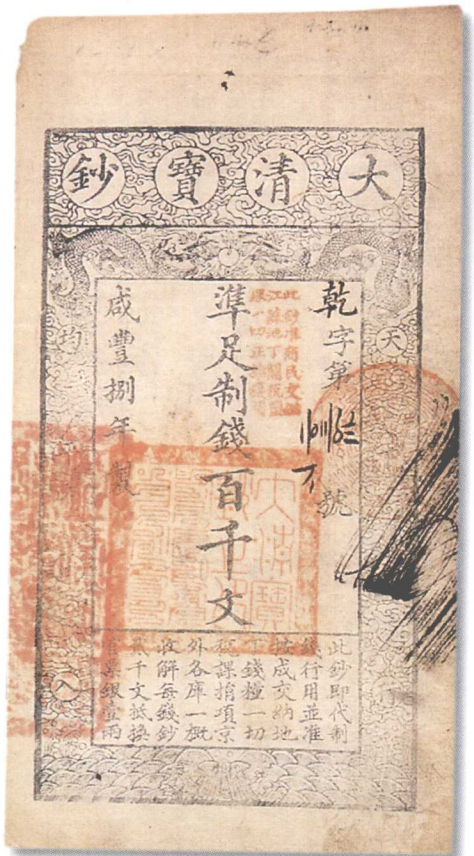 大清寶鈔
天
乾字第
號
此鈔准商民交
準足制錢百千文
咸豐捌年製
均
大清寶
此鈔即代制
錢行用並准
按成交納地
丁錢糧一切
稅課捐項京
外各庫一概
收解每錢鈔
貳千文抵換
官票銀壹兩